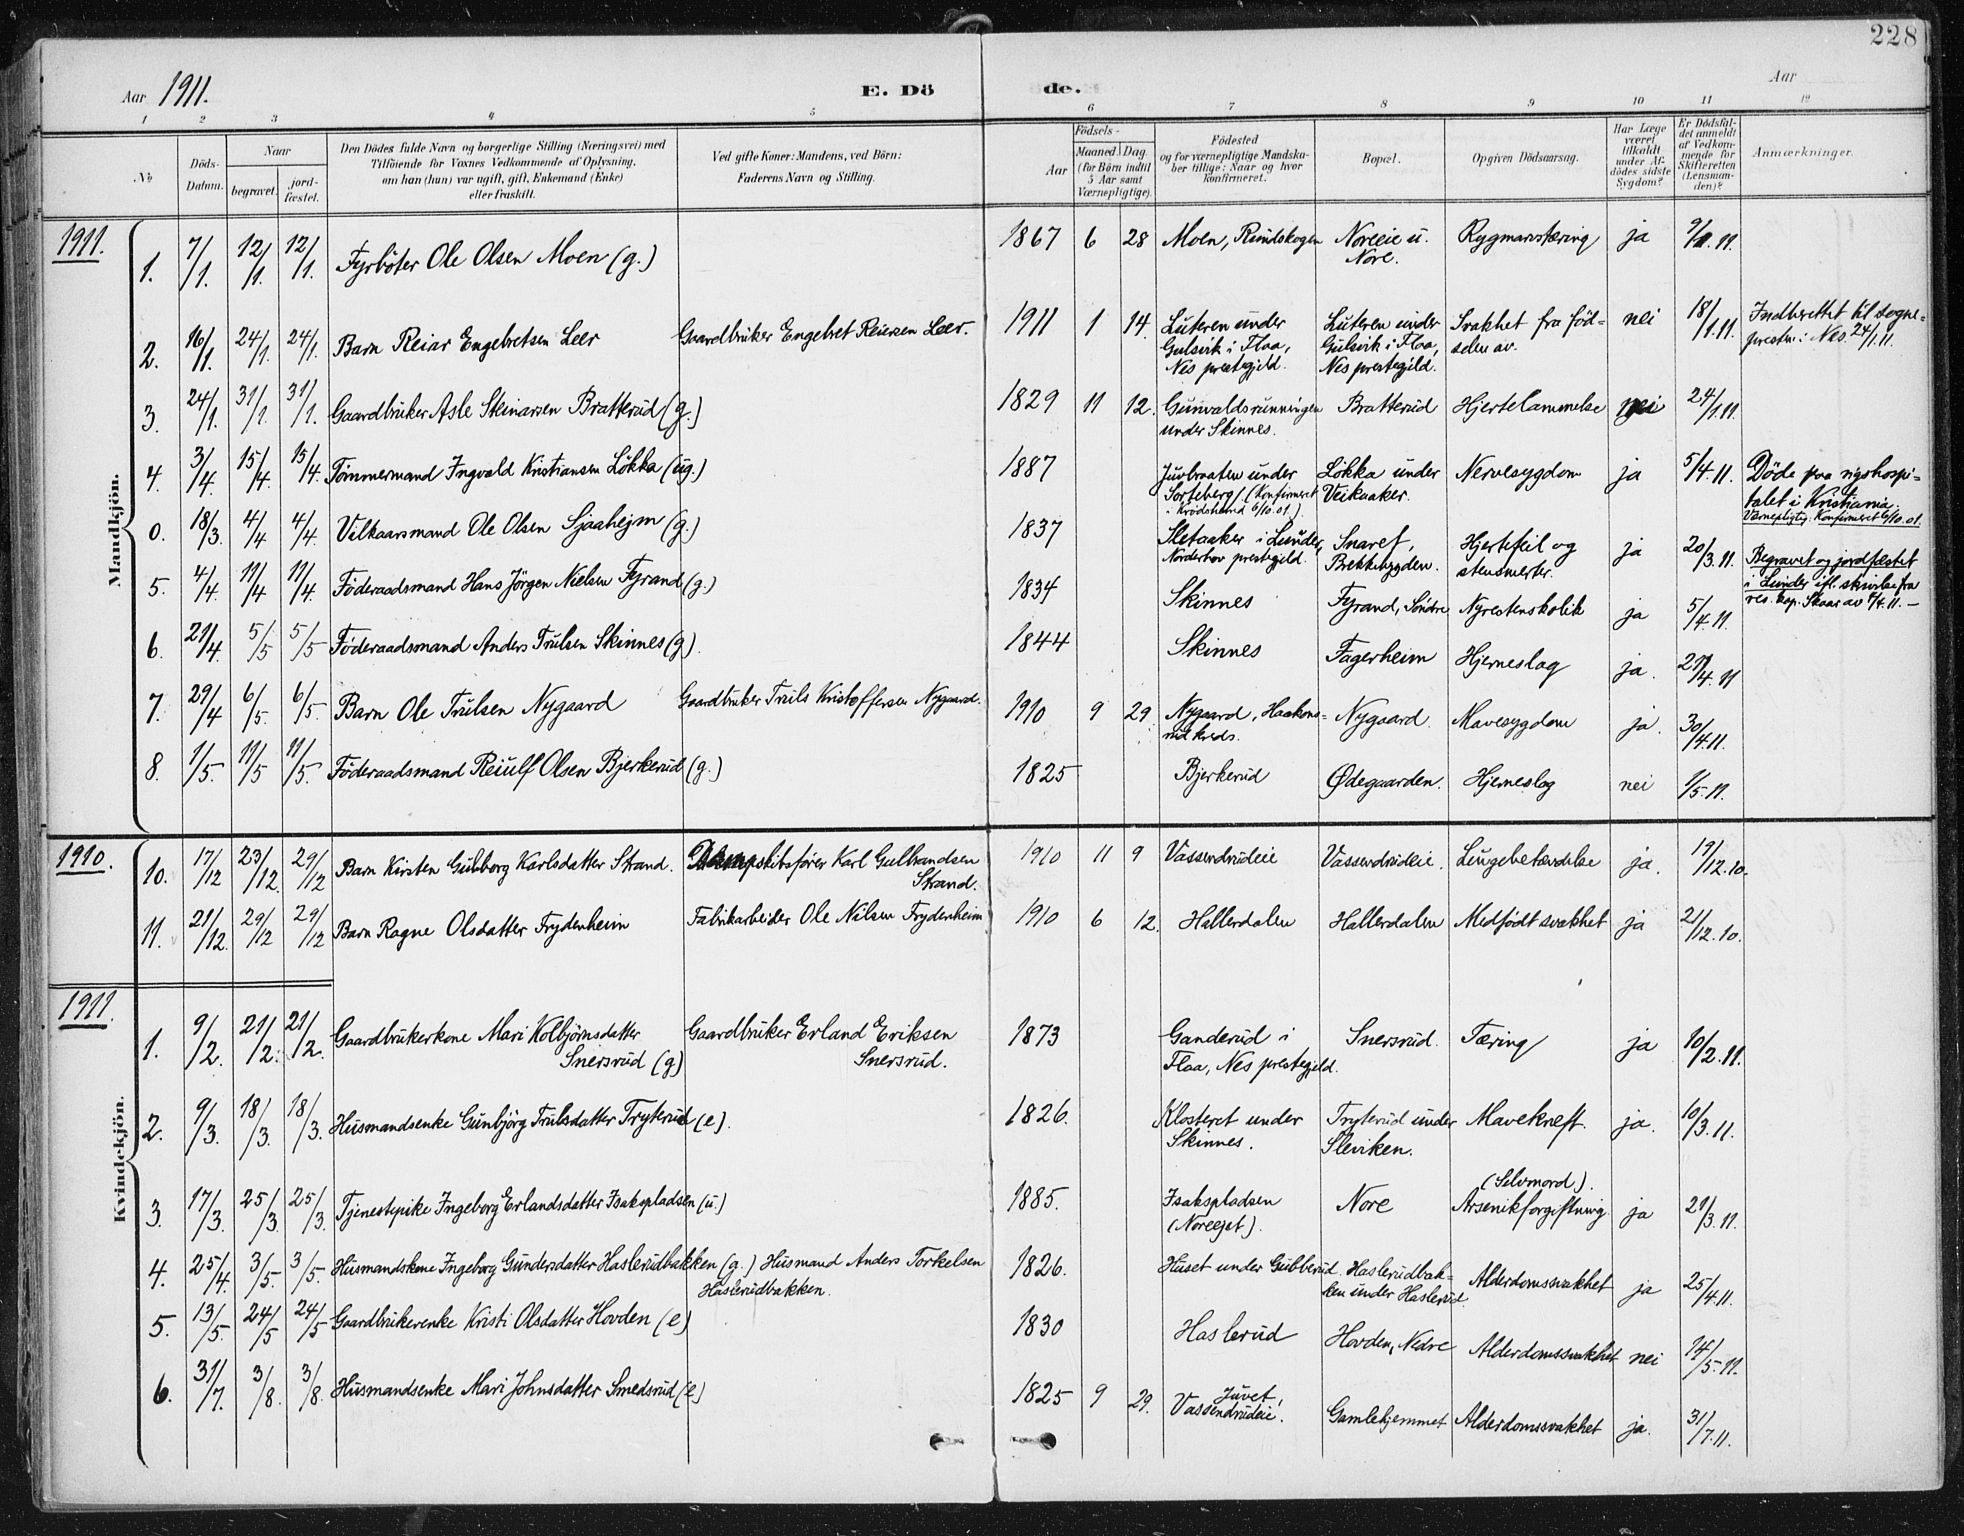 228
Aar 1911. E. Döde. Aar
1 2 3 4 5 6 7 8 9 10 11 12
No
Döds-Datum.
Naar
begravet.
jord-fæstet.
Den Dödes fulde Navn og borgerlige Stilling (Næringsvei) med
Tilföiende for Voxnes Vedkommende af Oplysning,
om han (hun) var ugift, gift, Enkemand (Enke)
eller fraskilt.
Ved gifte Koner: Mandens, ved Börn:
Faderens Navn og Stilling.
Födsels-
Aar
Maaned. Dag.
(for Börn indtil
5 Aar samt
Værnepligtige).
Födested
og for værnepligtige Mandska-
ber tillige: Naar og hvor
konfirmeret.
Bopæl.
Opgiven Dödsaarsag.
Har Læge
været
tilkaldt
under Af-
dödes sidste
Sygdom?
Er Dödsfal-
det anmeldt
af Vedkom-
mende for
Skifteretten
(Lensman-
den)?
Anmærkninger.
Mandkjön.
1911.
1. 7/1. 12/1. 12/1. Fyrböter Ole Olsen Moen (g.) 1867 6 28 Moen, Rundskogen Noreeie u. Rygmarvstæring ja 9/1.11.
Nore.
2. 16/1. 24/1. 24/1. Barn Reiar Engebretsen Leer Gaardbruker Engebret Reiersen Leer. 1911 1 14. Luteren under Luteren under Svakhet fra föd- nei 18/1.11. Indberettet til sogne-
Gulsvik i Flaa, Gulsvik i Flaa, selen av. presten i Nes 24/1.11.
Nes prestegjeld. Nes prestegjeld.
3. 24/1. 31/1. 31/1. Gaardbruker Asle Steinarsen Bratterud (g.) 1829 11 12. Gunvaldsrunningen Bratterud Hjertelammelse nei 24/1.11.
under Skinnes.
4. 3/4. 15/4. 15/4. Tömmermand Ingvald Kristiansen Lökka (ug.) 1887 Juvbraaten under Lökka under Nervesygdom ja 5/4.11. Döde paa rigshospi-
Sorteberg/. (Konfirmeret Veikaaker. talet i Kristiania.
i Krödsherad 6/10.01.) Værnepligtig. Konfirmeret 6/10.01.
0. 18/3. 4/4. 4/4. Vilkaarsmand Ole Olsen Sjaaheim (g.) 1837 Sletaaker i Lunder, Snaret, Hjertefeil og ja 20/3.11. Begravet og jordfæstet
Norderhov prestegjeld. Brekkebygden. stensmerter. i Lunder ifl. skrivelse fra
res. kap. Skaar av 4/4.11. —
5. 4/4. 11/4. 11/4. Föderaadsmand Hans Jörgen Nielsen Fyrand (g.) 1834 Skinnes Fyrand, Söndre Nyrestenskolik ja 5/4.11.
6. 21/4. 5/5 5/5 Föderaadsmand Anders Trulsen Skinnes (g). 1844 Skinnes Fagerheim Hjerneslag ja. 27/4.11
7. 29/4 6/5. 6/5. Barn Ole Trulsen Nygaard Gaardbruker Truls Kristoffersen Nygaard. 1910 9 29. Nygaard, Haakons- Nygaard. Mavesygdom ja. 30/4.11.
rud kreds.
8. 1/5. 11/5 11/5. Föderaadsmand Reiulf Olsen Bjerkerud (g.) 1825 Bjerkerud Ødegaarden. Hjerneslag nei 1/5.11.
Kvindekjön.
1910.
10. 17/12 23/12. 29/12 Barn Kirsten Gulborg Karlsdatter Strand. Dampskibsförer Karl Gulbrandsen 1910 11 9 Vassendrudeie Vassendrudeie. Lungebetændelse ja. 19/12.10.
Strand.
11. 21/12. 29/12 29/12 Barn Ragne Olsdatter Frydenheim Fabrikarbeider Ole Nilsen Frydenheim 1910 6 12. Hallerdalen Hallerdalen Medfödt svakhet ja 21/12.10.
1911.
1. 9/2. 21/2. 21/2. Gaardbrukerkone Mari Kolbjörnsdatter Gaardbruker Erland Eriksen 1873 Ganderud i Snersrud. Tæring ja 10/2.11.
Snersrud (g) Snersrud. Flaa, Nes prestegjeld.
2. 9/3. 18/3. 18/3. Husmandsenke Gunbjörg Trulsdatter Tryterud (e). 1826. Klosteret under Tryterud under Mavekræft. ja. 10/3.11.
Skinnes. Sleviken.
3. 17/3. 25/3. 25/3. Tjenestepike Ingeborg Erlandsdatter Isakspladsen (u.) 1885. Isakspladsen Nore (Selvmord). Arsenikforgiftning. ja 21/3.11.
(Noreeget).
4. 25/4. 3/5. 3/5. Husmandskone Ingeborg Gundersdatter Haslerudbakken (g.) Husmand Anders Torkelsen 1826. Huset under Gubberud. Haslerudbak- Alderdomssvakhet ja 25/4.11.
Haslerudbakken. ken under Haslerud.
5. 13/5. 24/5 24/5 Gaardbrukerenke Kristi Olsdatter Hovden (e) 1830 Haslerud Hovden, Nedre Alderdomssvakhet nei 14/5.11.
6. 31/7. 3/8. 3/8. Husmandsenke Mari Johnsdatter Smedsrud (e.) 1825 9 29. Juvet, Vassendrudeie. Gamlehjemmet Alderdomssvakhet ja. 31/7.11.